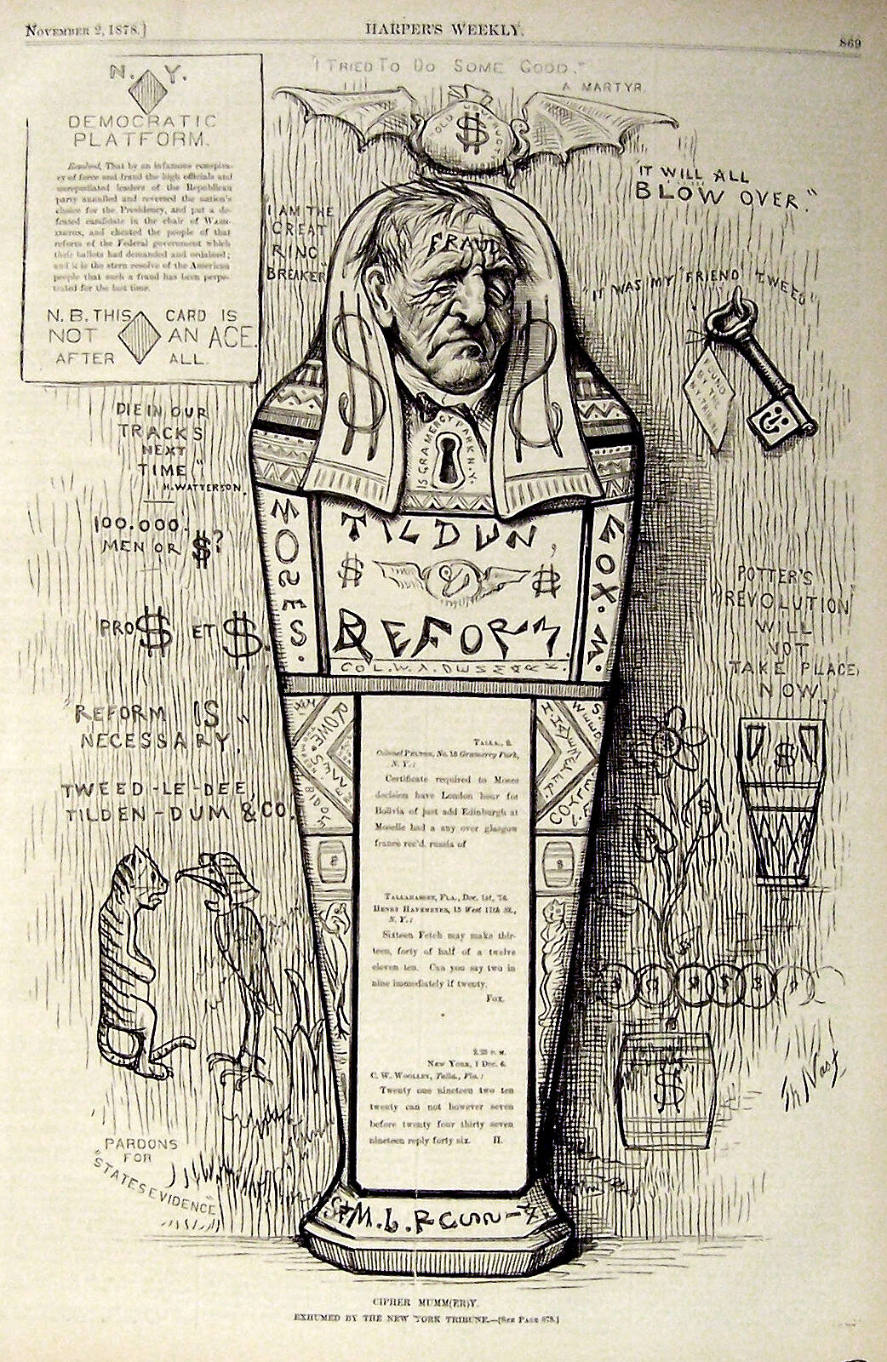 NOVEMBER 2, 1878.]
HARPER'S WEEKLY.
869
"I TRIED TO DO SOME GOOD."
A MARTYR.
N. Y.
DEMOCRATIC
PLATFORM.
Resolved, That by an infamous conspira-
cy of force and fraud the high officials and
unrepudiated leaders of the Republican
party annulled and reversed the nation's
choice for the Presidency, and put a de-
feated candidate in the chair of WASH-
INGTON, and cheated the people of that
reform of the Federal government which
their ballots had demanded and ordained;
and it is the stern resolve of the American
people that such a fraud has been perpe-
trated for the last time.
N. B. THIS CARD IS
NOT AN ACE.
AFTER ALL.
OLD
$
I AM THE
GREAT
RING
BREAKER"
"IT WILL ALL
BLOW OVER."
"IT WAS MY 'FRIEND' TWEED"
FOUND
BY THE
TRIBUNE
FRAUD
$ $
15 GRAMERCY PARK N.Y.
"DIE IN OUR
TRACKS
NEXT
TIME"
H. WATTERSON.
100.000.
MEN OR $?
PRO $ ET $.
"REFORM IS
NECESSARY"
TWEED-LE-DEE,
TILDEN-DUM & CO.
MOSES.
TILDUN,
$ $
REFORM
FOX. M.
POTTER'S
"REVOLUTION"
WILL
NOT
TAKE PLACE,
NOW.
$
TALLA., 2.
Colonel PELTON, No. 15 Gramercy Park,
N. Y.:
Certificate required to Moses
decision have London hour for
Bolivia of just add Edinburgh at
Moselle had a any over glasgow
france rec'd. russia of
TALLAHASSEE, FLA., Dec. 1st, '76.
HENRY HAVEMEYER, 15 West 17th St.,
N. Y.:
Sixteen Fetch may make thir-
teen, forty of half of a twelve
eleven ten. Can you say two in
nine immediately if twenty.
FOX.
2.30 P. M.
NEW YORK, 1 Dec. 6.
C. W. WOOLLEY, Talla., Fla.:
Twenty one nineteen two ten
twenty can not however seven
before twenty four thirty seven
nineteen reply forty six. H.
$
Th Nast
PARDONS
FOR
"STATES EVIDENCE"
CIPHER MUMM(ER)Y.
EXHUMED BY THE NEW YORK TRIBUNE.—[SEE PAGE 878.]